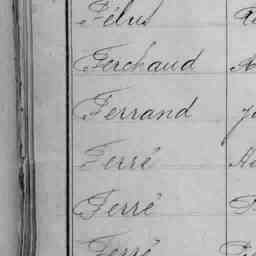 Félus
Ferchaud
Ferrand
Ferré
Ferré
Ferré